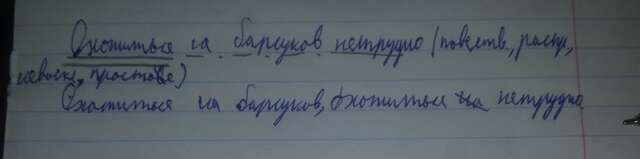 Охотиться на барсуков нетрудно (повеств., распр,
невоскл, простое)
Охотиться на барсуков, охотиться на нетрудно